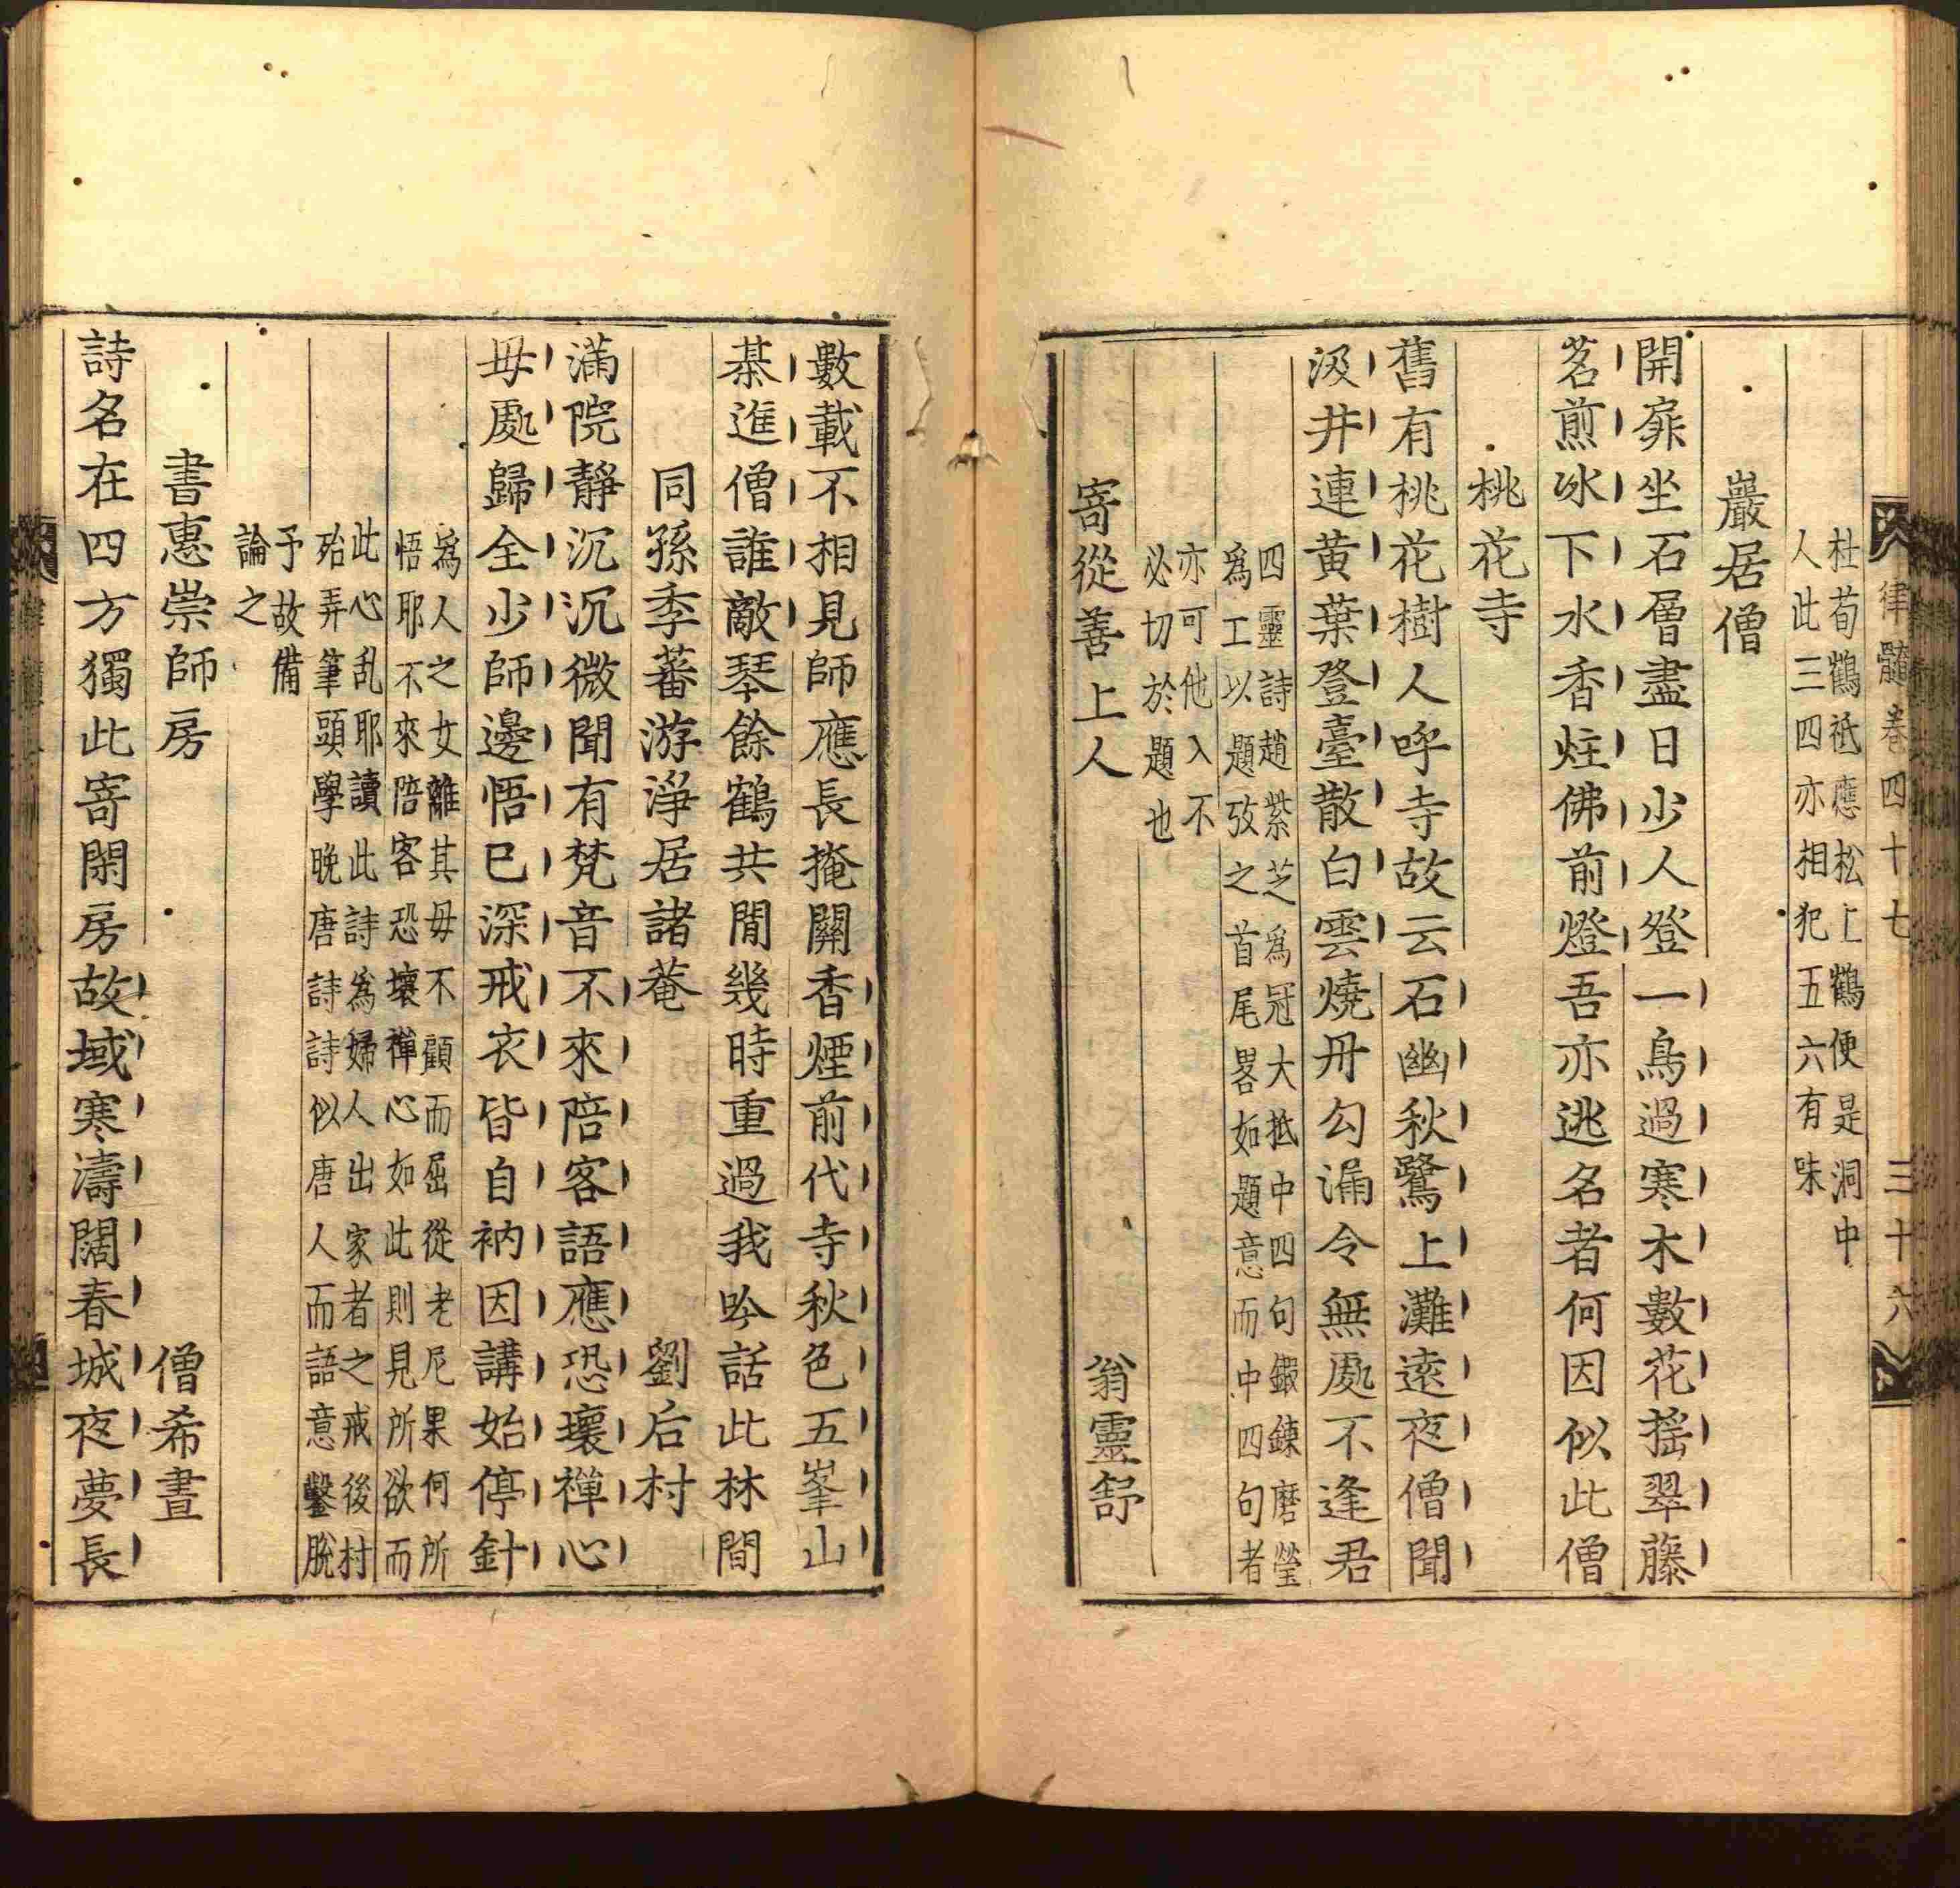 律髓卷四十七 三十六
杜荀鶴祗應松上鶴便是洞中
人此三四亦相犯五六有味
巖居僧
開扉坐石層盡日少人登一鳥過寒木數花搖翠藤
茗煎冰下水香炷佛前燈吾亦逃名者何因似此僧
桃花寺
舊有桃花樹人呼寺故云石幽秋鷺上灘遠夜僧聞
汲井連黃葉登臺散白雲燒丹勾漏令無處不逢君
四靈詩趙紫芝爲冠大抵中四句鍛鍊磨瑩
爲工以題攷之首尾畧如題意而中四句者
亦可他入不
必切於題也
寄從善上人 翁靈舒
數載不相見師應長掩關香煙前代寺秋色五峯山
棊進僧誰敵琴餘鶴共閒幾時重過我吟話此林間
同孫季蕃游淨居諸菴 劉后村
滿院靜沉沉微聞有梵音不來陪客語應恐壞禪心
毋處歸全少師邊悟已深戒衣皆自衲因講始停針
爲人之女離其毋不顧而屈從老尼果何所
悟耶不來陪客恐壞禪心如此則見所欲而
此心乱耶讀此詩爲婦人出家者之戒後村
殆弄筆頭學晚唐詩詩似唐人而語意鑿脫
予故備
論之
書惠崇師房 僧希晝
詩名在四方獨此寄閑房故域寒濤闊春城夜夢長